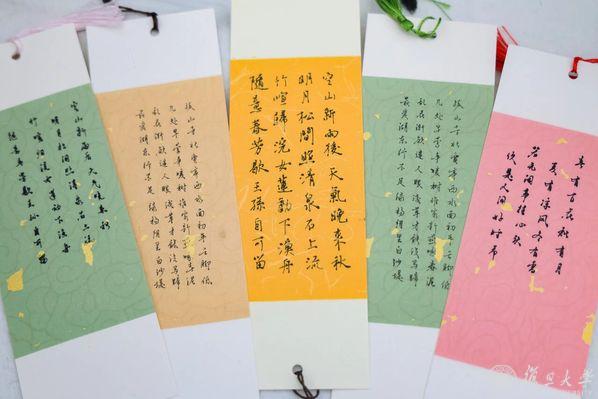 空山新雨后天气晚来秋
明月松间照清泉石上流
竹喧归浣女莲动下渔舟
随意春芳歇王孙自可留
孤山寺北贾亭西水面初平云脚低
几处早莺争暖树谁家新燕啄春泥
乱花渐欲迷人眼浅草才能没马蹄
最爱湖东行不足绿杨阴里白沙堤
空山新雨後天氣晚來秋
明月松間照清泉石上流
竹喧歸浣女蓮動下漁舟
隨意春芳歇王孫自可留
孤山寺北贾亭西水面初平云脚低
几处早莺争暖树谁家新燕啄春泥
乱花渐欲迷人眼浅草才能没马蹄
最爱湖东行不足绿杨阴里白沙堤
春有百花秋有月
夏有凉风冬有雪
若无闲事挂心头
便是人间好时节
復旦大學